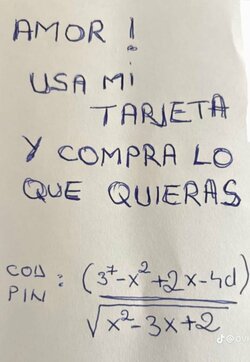 AMOR!
USA MI
TARJETA
Y COMPRA LO
QUE QUIERAS
COD PIN : (3⁷-x²+2x-4d) / √(x²-3x+2)